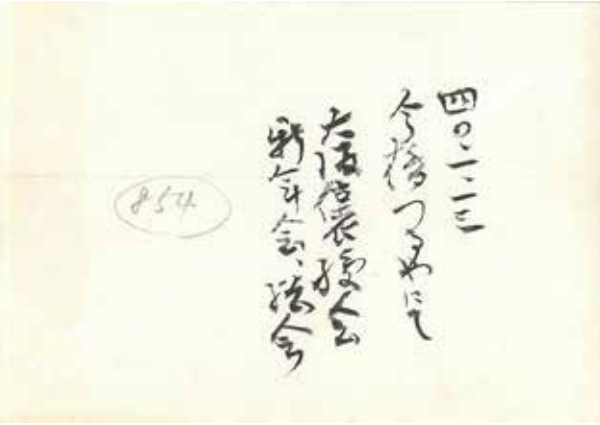 四〇.二.三
今橋つるやにて
大阪褒綬会
新年会、総会
854